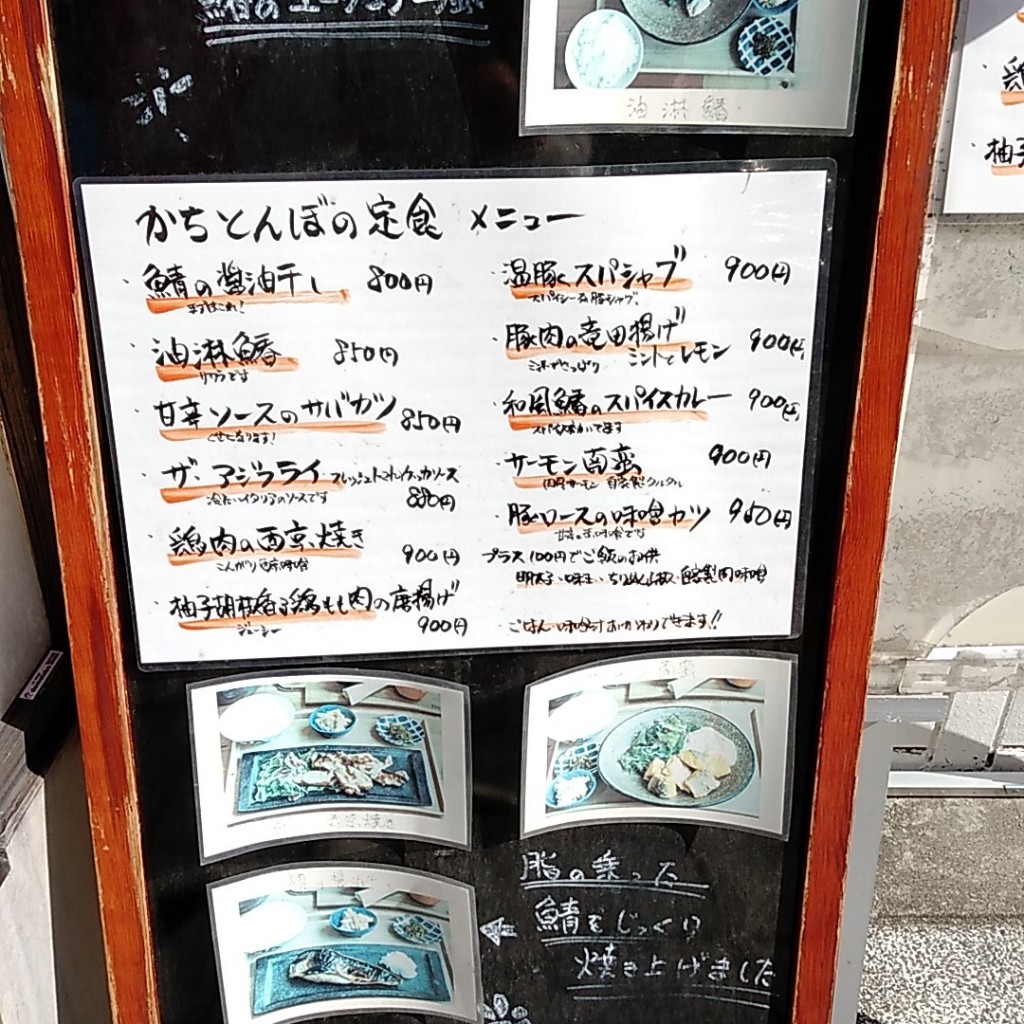 油淋鰆
かちとんぼの定食 メニュー
・鯖の醤油干し 800円
まずはこれ!
・油淋鰆 850円
サワラです
・甘辛ソースのサバカツ 850円
くせになります!
・ザ・アジフライ フレッシュトマトケッカソース
冷たいイタリアのソースです 880円
・鶏肉の西京焼き 900円
こんがり西京味噌
・柚子胡椒香る鶏もも肉の唐揚げ
ジューシー 900円
・温豚しスパシャブ 900円
スパイシーな豚シャブ
・豚肉の竜田揚げ 900円
ミントとレモン
・和風鰆のスパイスカレー 900円
・サーモン南蛮 900円
自家製タルタル
・豚ロースの味噌カツ 950円
プラス100円でご飯のお供
明太子・味玉・ちりめん山椒・自家製肉味噌
ごはん・味噌汁おかわりできます!!
鶏
柚子
西京焼き
脂の乗った
鯖をじっくり
焼き上げました